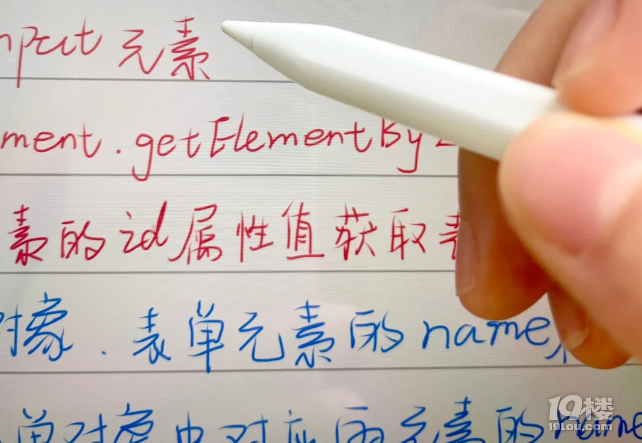 input 元素
ment.getElementBy
素的id属性值获取表
对象.表单元素的name
单对象中对应的元素的name
19楼
19lou.com